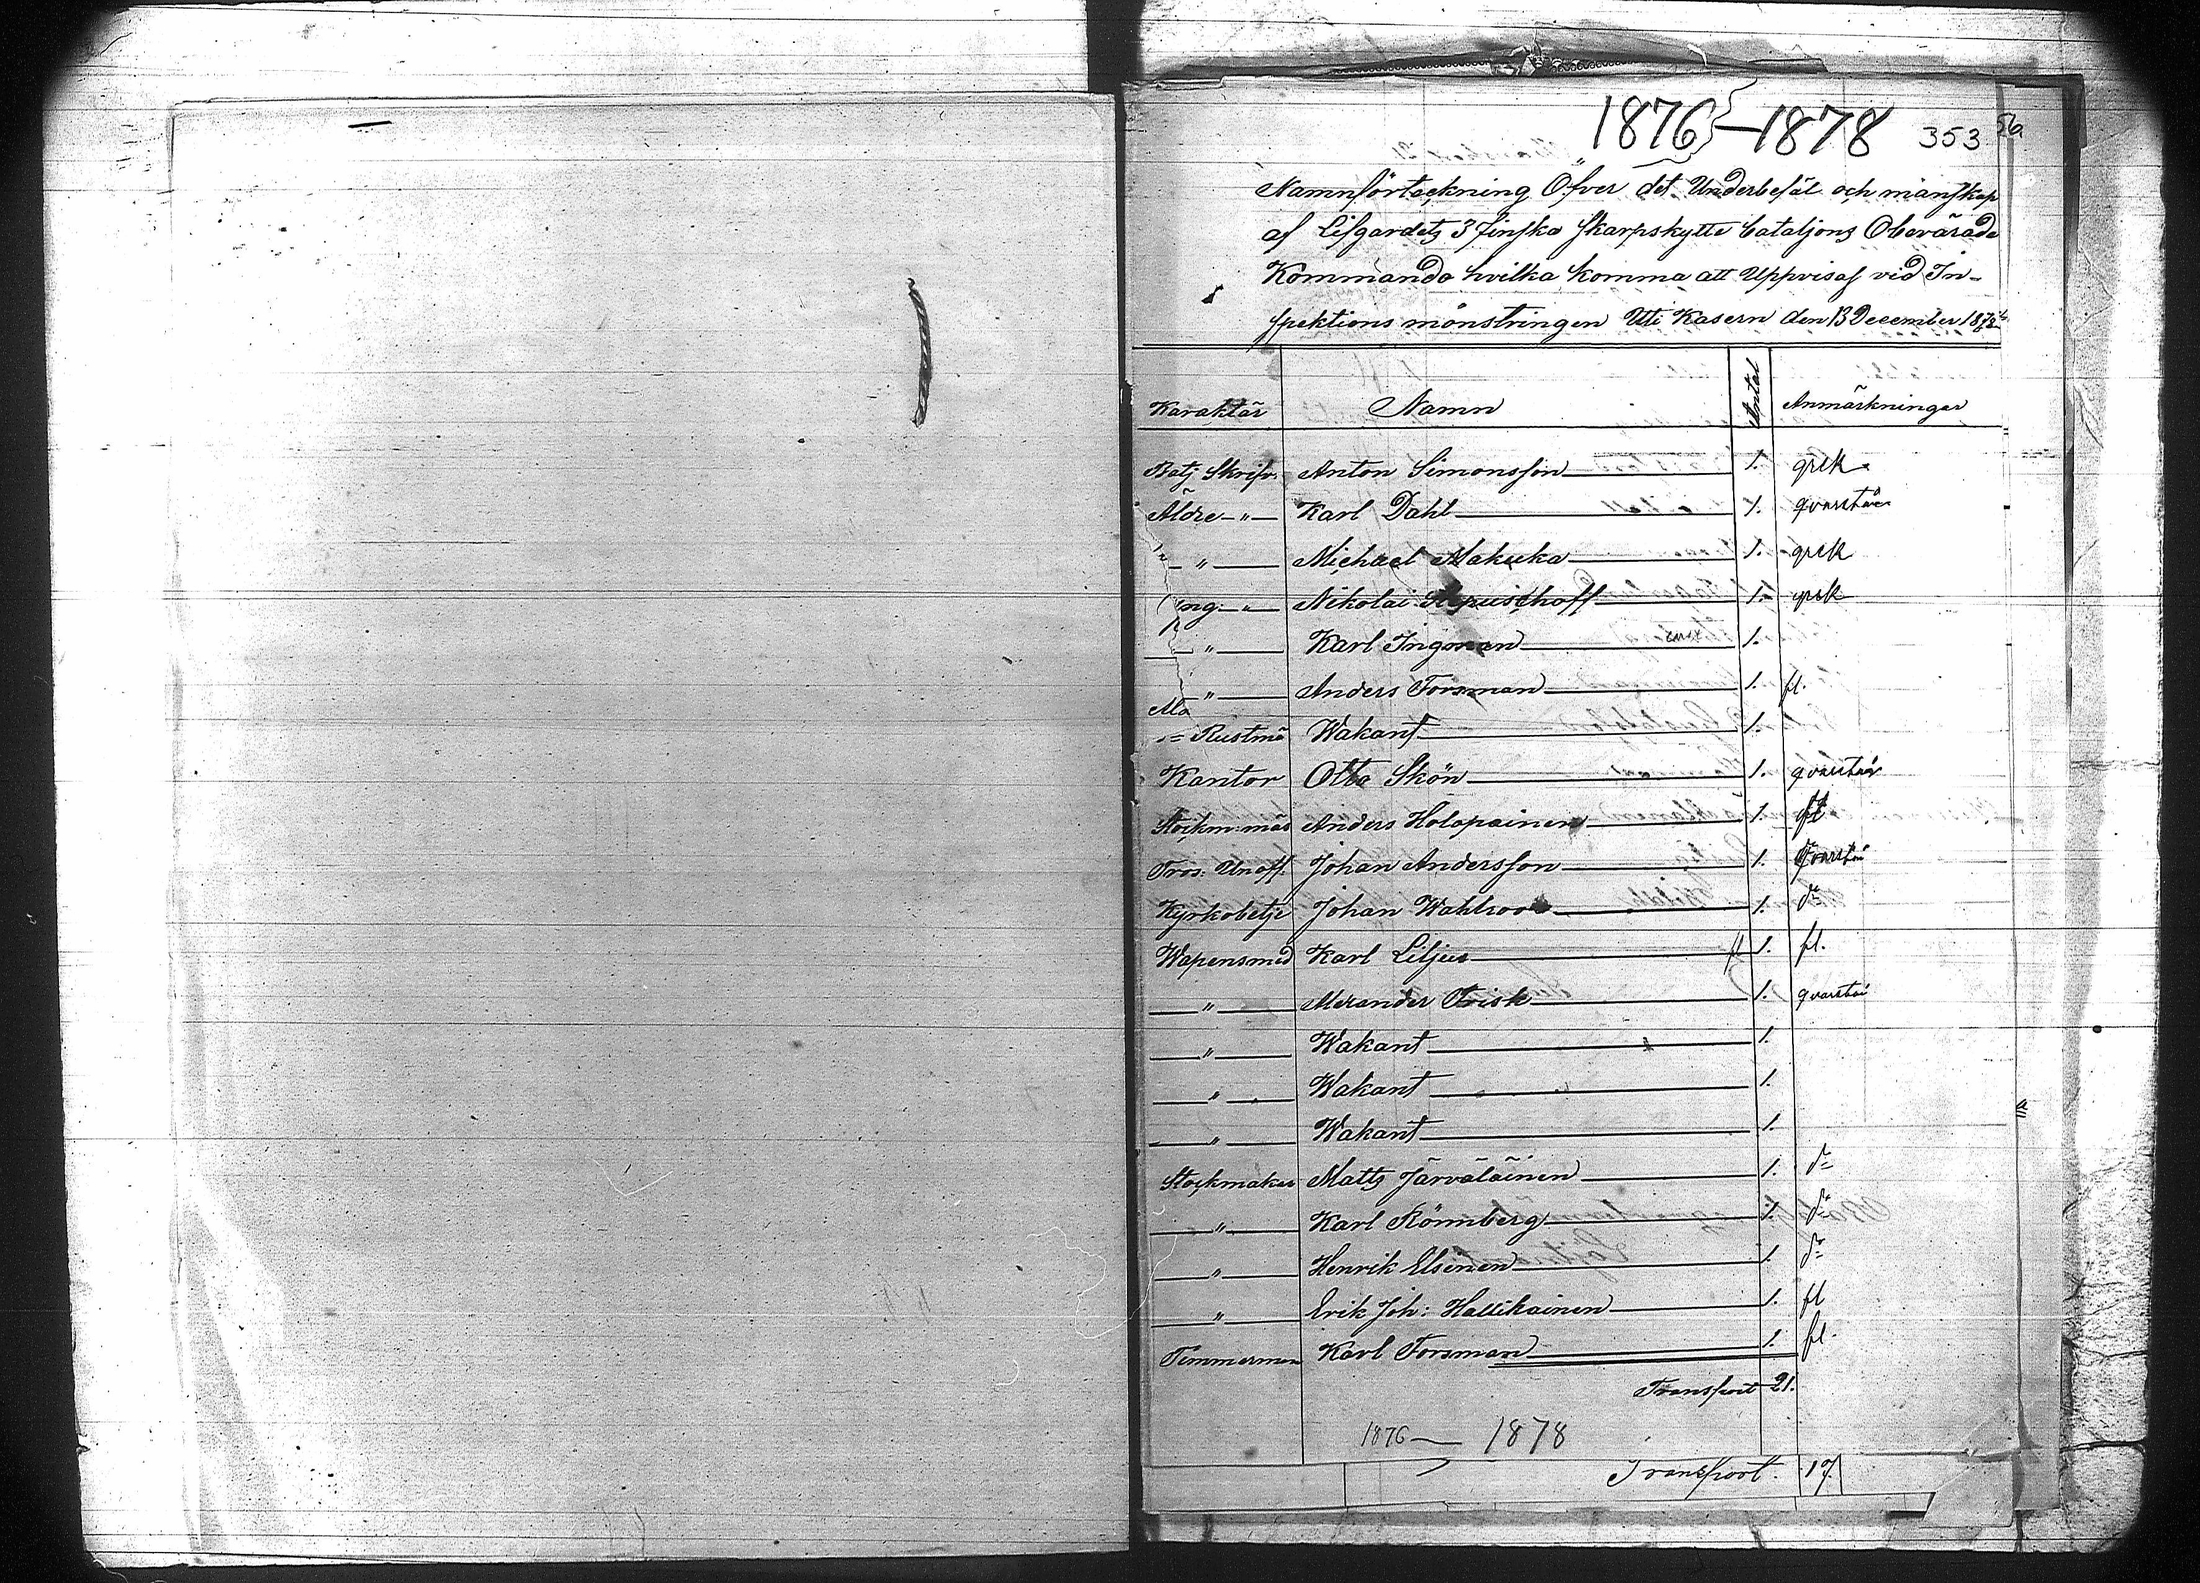 1876 — 1878 353 56
Namnförteckning Öfver det Underbefäl och manskap
af Lifgardets 3 Finska Skarpskytte bataljons Obevärade
Kommando hvilka komma att Uppvisas vid In-
spektions mönstringen Uti Kasern den 13 December 1878
Karaktär Namn Antal Anmärkningar
Batj Skrifv. Anton Simonsson 1. grek.
Äldre " Karl Dahl 1. qvarstår
" Michael Makuka 1. grek
yng. " Nikolai 1. grek
" Karl Ingman 1.
" Anders Forsman 1. fl.
Rustmä Wakant 1.
Kantor Otto Skön 1. qvarstår
Stockm: mäs Anders Holopainen 1. fl
Tros. Unoff. Johan Andersson 1. Qvarstår
Kyrkobetje Johan Wahlroos 1. do
Wapensmed Karl Liljus fl 1. fl.
" Alexander Frisk 1. qvarstår
" Wakant 1.
" Wakant 1.
" Wakant 1.
Stockmakar Matts Järväläinen 1. do
" Karl Rönnberg 1. do
" Henrik Elsinen 1. do
" Erik Joh: Hallikainen 1. fl
Timmerman Karl Forsman 1. fl.
Transport 21.
1876 — 1878
Transport. 17